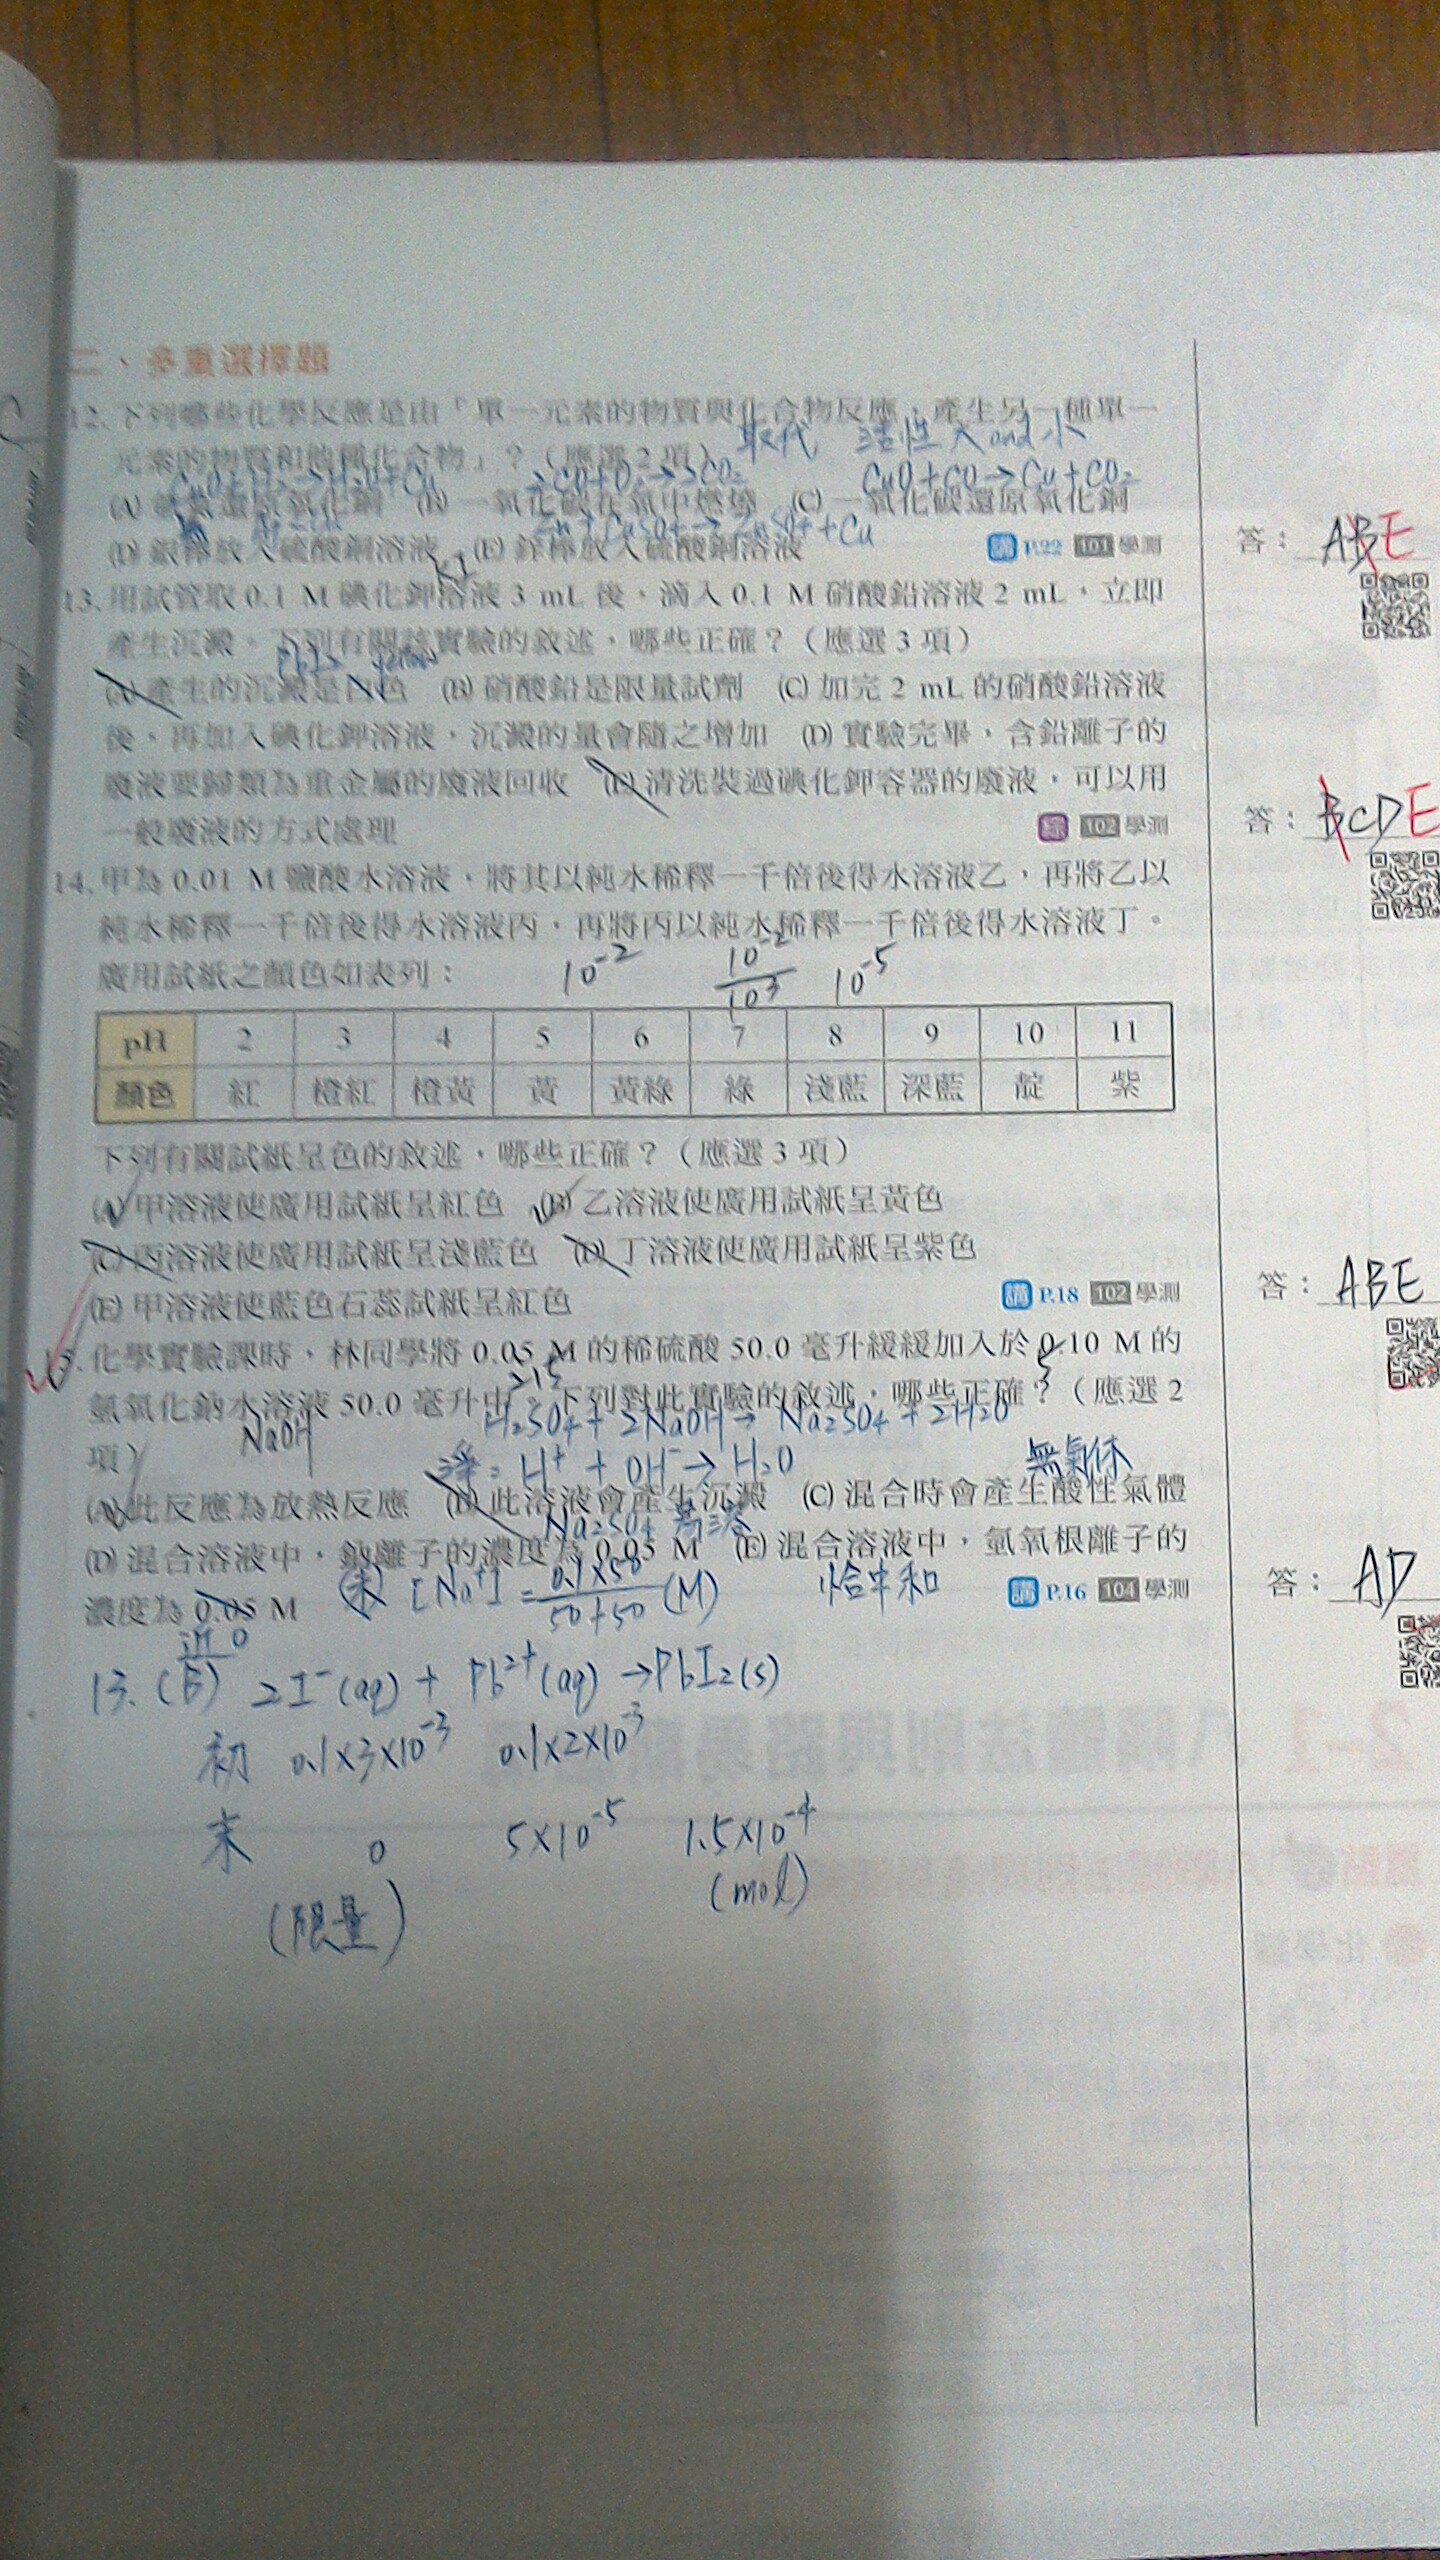 二、多重選擇題
12. 下列哪些化學反應是由「單一元素的物質與化合物反應,產生另一種單一
取代 活性大 and 小
元素的物質和他種化合物」?(應選 2 項)
CuO+H₂→H₂O+Cu 2CO+O₂→2CO₂ CuO+CO→Cu+CO₂
(A) 氫氣還原氧化銅 (B) 一氧化碳在氧中燃燒 (C) 一氧化碳還原氧化銅
Zn+CuSO₄→ZnSO₄+Cu
(D) 銀棒放入硫酸銅溶液 (E) 鋅棒放入硫酸銅溶液 講 P.22 101 學測
答: ABE
KI
13. 用試管取 0.1 M 碘化鉀溶液 3 mL 後,滴入 0.1 M 硝酸鉛溶液 2 mL,立即
產生沉澱。下列有關該實驗的敘述,哪些正確?(應選 3 項)
PbI₂
(A) 產生的沉澱是白色 (B) 硝酸鉛是限量試劑 (C) 加完 2 mL 的硝酸鉛溶液
後,再加入碘化鉀溶液,沉澱的量會隨之增加 (D) 實驗完畢,含鉛離子的
廢液要歸類為重金屬的廢液回收 (E) 清洗裝過碘化鉀容器的廢液,可以用
一般廢液的方式處理 綜 102 學測
答: BCDE
14. 甲為 0.01 M 鹽酸水溶液,將其以純水稀釋一千倍後得水溶液乙,再將乙以
純水稀釋一千倍後得水溶液丙,再將丙以純水稀釋一千倍後得水溶液丁。
廣用試紙之顏色如表列: 10⁻² 10⁻²/10³ 10⁻⁵
pH 2 3 4 5 6 7 8 9 10 11
顏色 紅 橙紅 橙黃 黃 黃綠 綠 淺藍 深藍 靛 紫
下列有關試紙呈色的敘述,哪些正確?(應選 3 項)
(A) 甲溶液使廣用試紙呈紅色 (B) 乙溶液使廣用試紙呈黃色
(C) 丙溶液使廣用試紙呈淺藍色 (D) 丁溶液使廣用試紙呈紫色
(E) 甲溶液使藍色石蕊試紙呈紅色 講 P.18 102 學測
答: ABE
15. 化學實驗課時,林同學將 0.05 M 的稀硫酸 50.0 毫升緩緩加入於 0.10 M 的
氫氧化鈉水溶液 50.0 毫升中。下列對此實驗的敘述,哪些正確?(應選 2
NaOH H₂SO₄+2NaOH→Na₂SO₄+2H₂O
項)
淨: H⁺+OH⁻→H₂O 無氣体
(A) 此反應為放熱反應 (B) 此溶液會產生沉澱 (C) 混合時會產生酸性氣體
Na₂SO₄ 易溶
(D) 混合溶液中,鈉離子的濃度為 0.05 M (E) 混合溶液中,氫氧根離子的
末 [Na⁺]=0.1×50/50+50 (M) 恰中和
濃度為 0.05 M 講 P.16 104 學測
近 0
答: AD
13. (B) 2I⁻(aq) + Pb²⁺(aq) → PbI₂(s)
初 0.1×3×10⁻³ 0.1×2×10⁻³
末 0 5×10⁻⁵ 1.5×10⁻⁴
(限量) (mol)